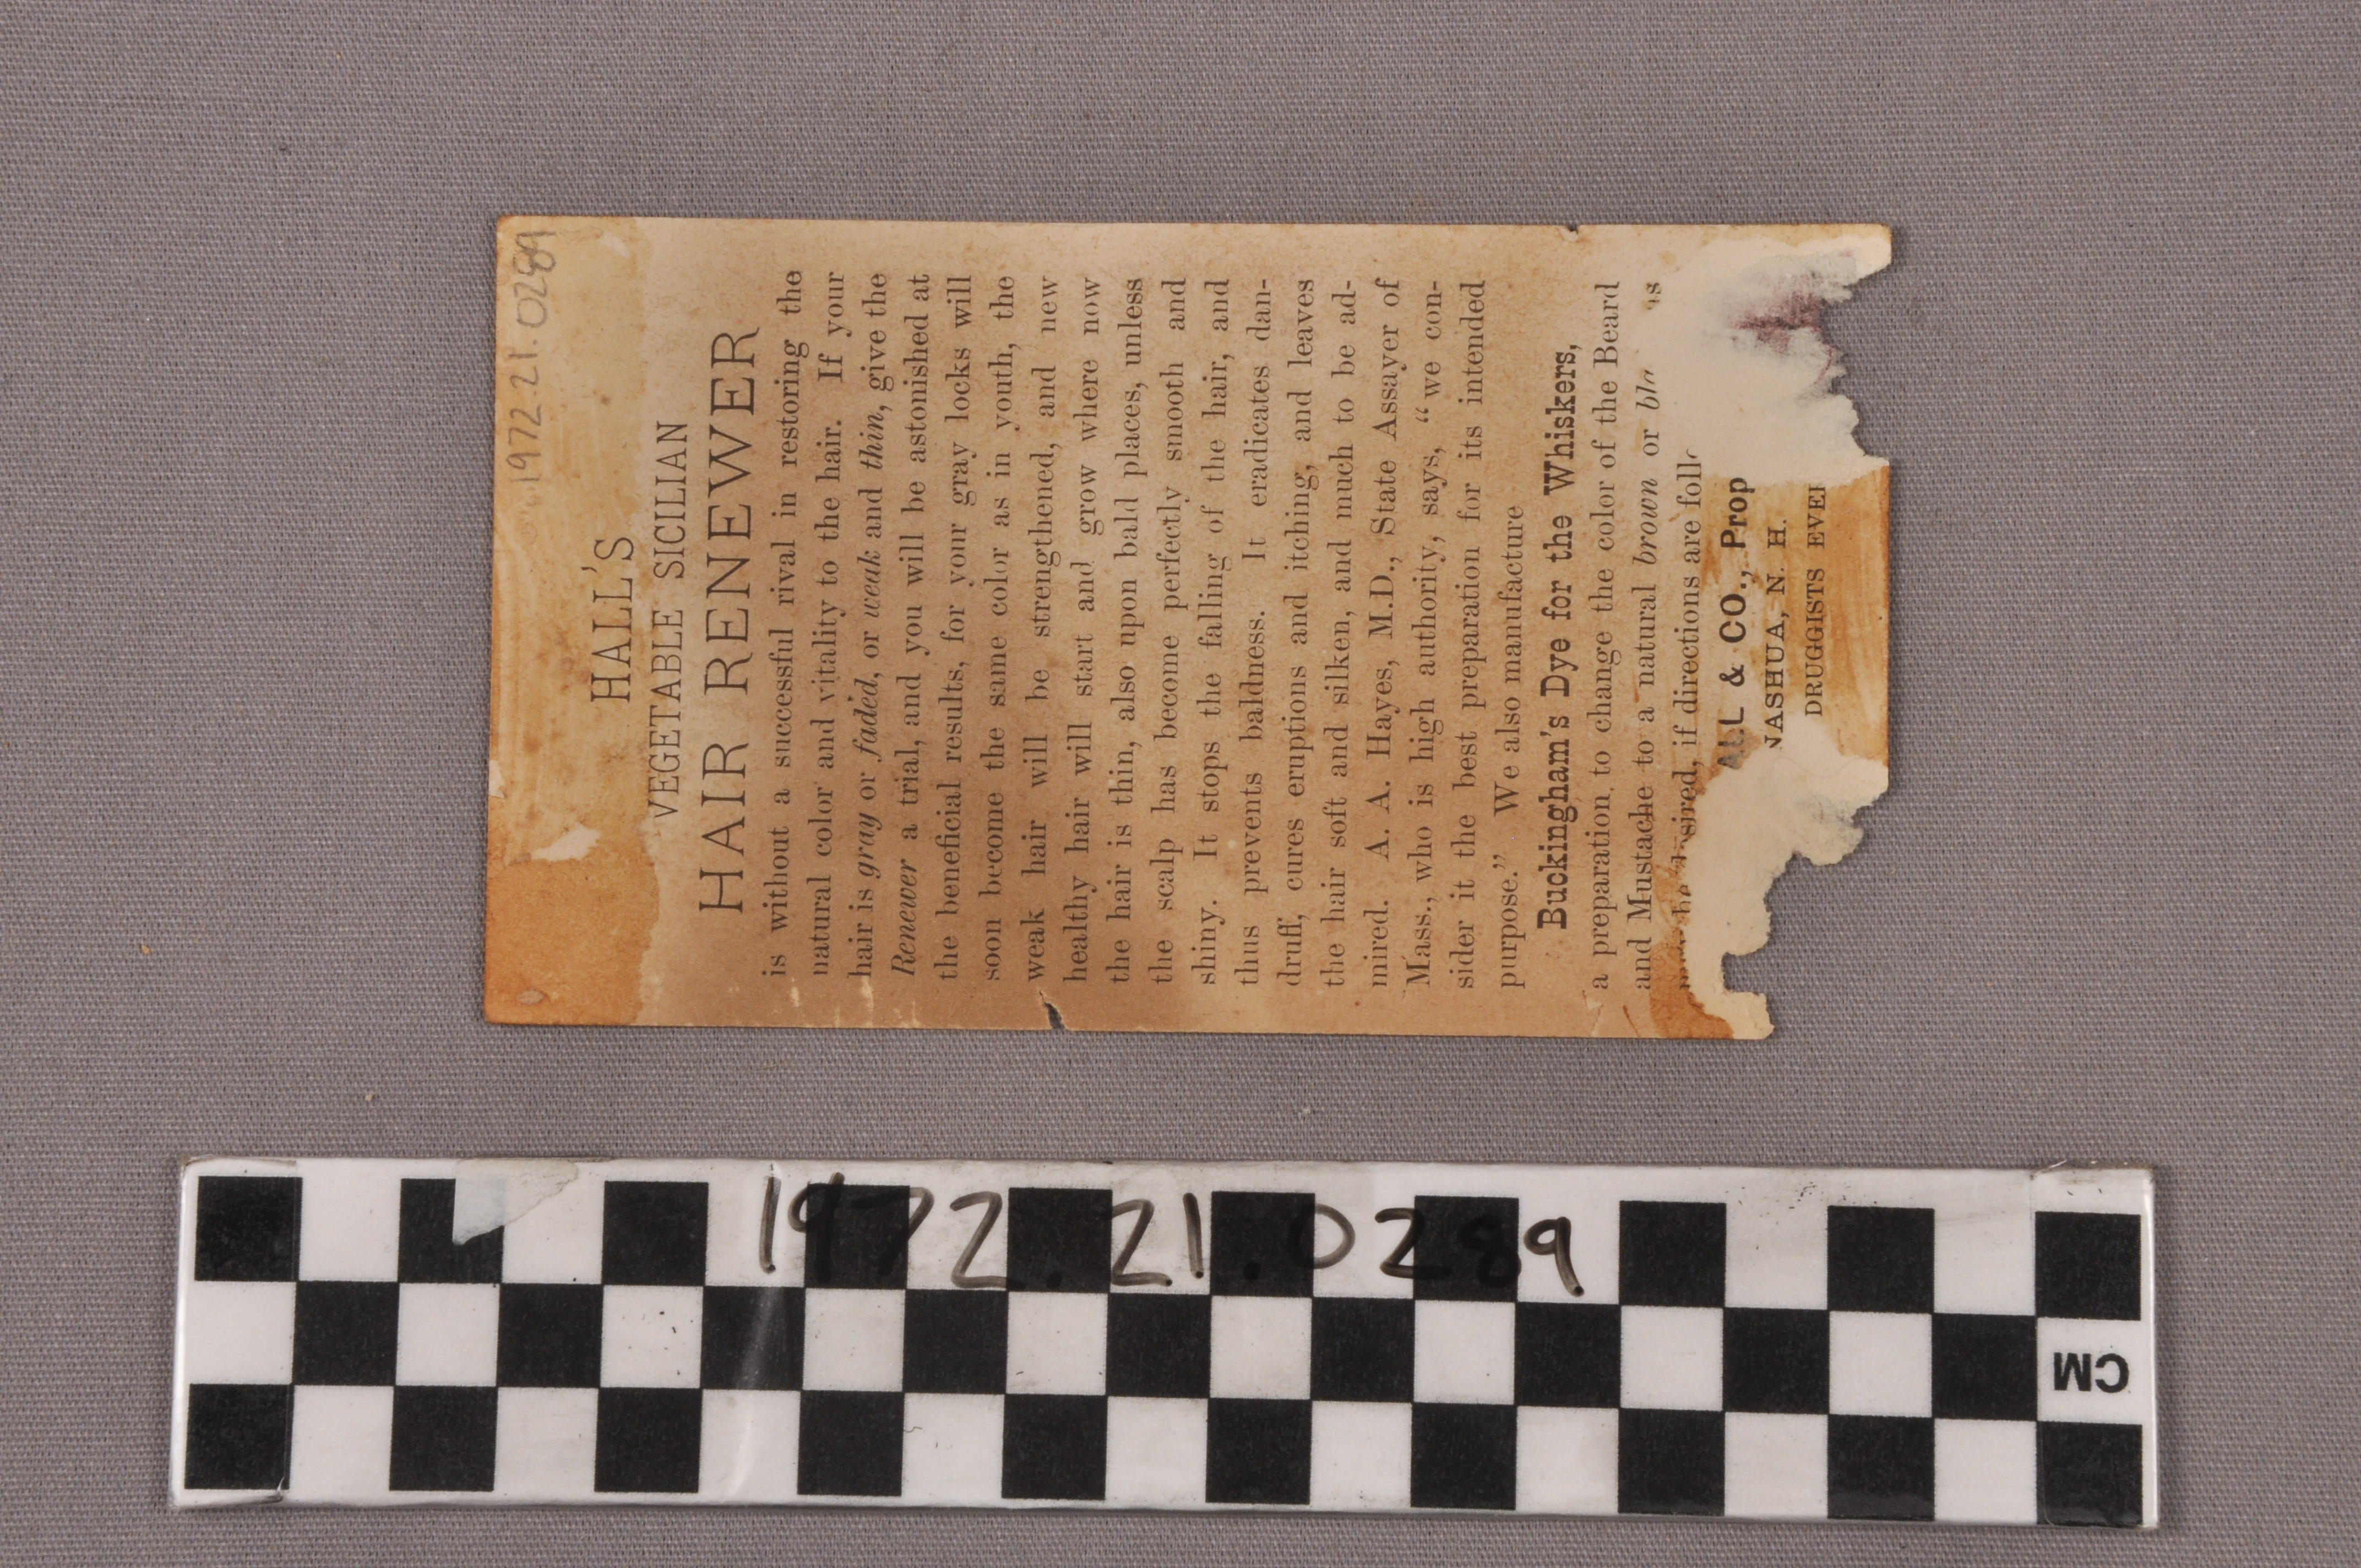 1972.21.0289
HALL'S
VEGETABLE SICILIAN
HAIR RENEWER
is without a successful rival in restoring the
natural color and vitality to the hair. If your
hair is gray or faded, or weak and thin, give the
Renewer a trial, and you will be astonished at
the beneficial results, for your gray locks will
soon become the same color as in youth, the
weak hair will be strengthened, and new
healthy hair will start and grow where now
the hair is thin, also upon bald places, unless
the scalp has become perfectly smooth and
shiny. It stops the falling of the hair, and
thus prevents baldness. It eradicates dan-
druff, cures eruptions and itching, and leaves
the hair soft and silken, and much to be ad-
mired. A. A. Hayes, M.D., State Assayer of
Mass., who is high authority, says, “we con-
sider it the best preparation for its intended
purpose.” We also manufacture
Buckingham's Dye for the Whiskers,
a preparation to change the color of the Beard
and Mustache to a natural brown or
if directions are
& CO., Prop
NASHUA, N. H.
DRUGGISTS
1972.21.0289
CM